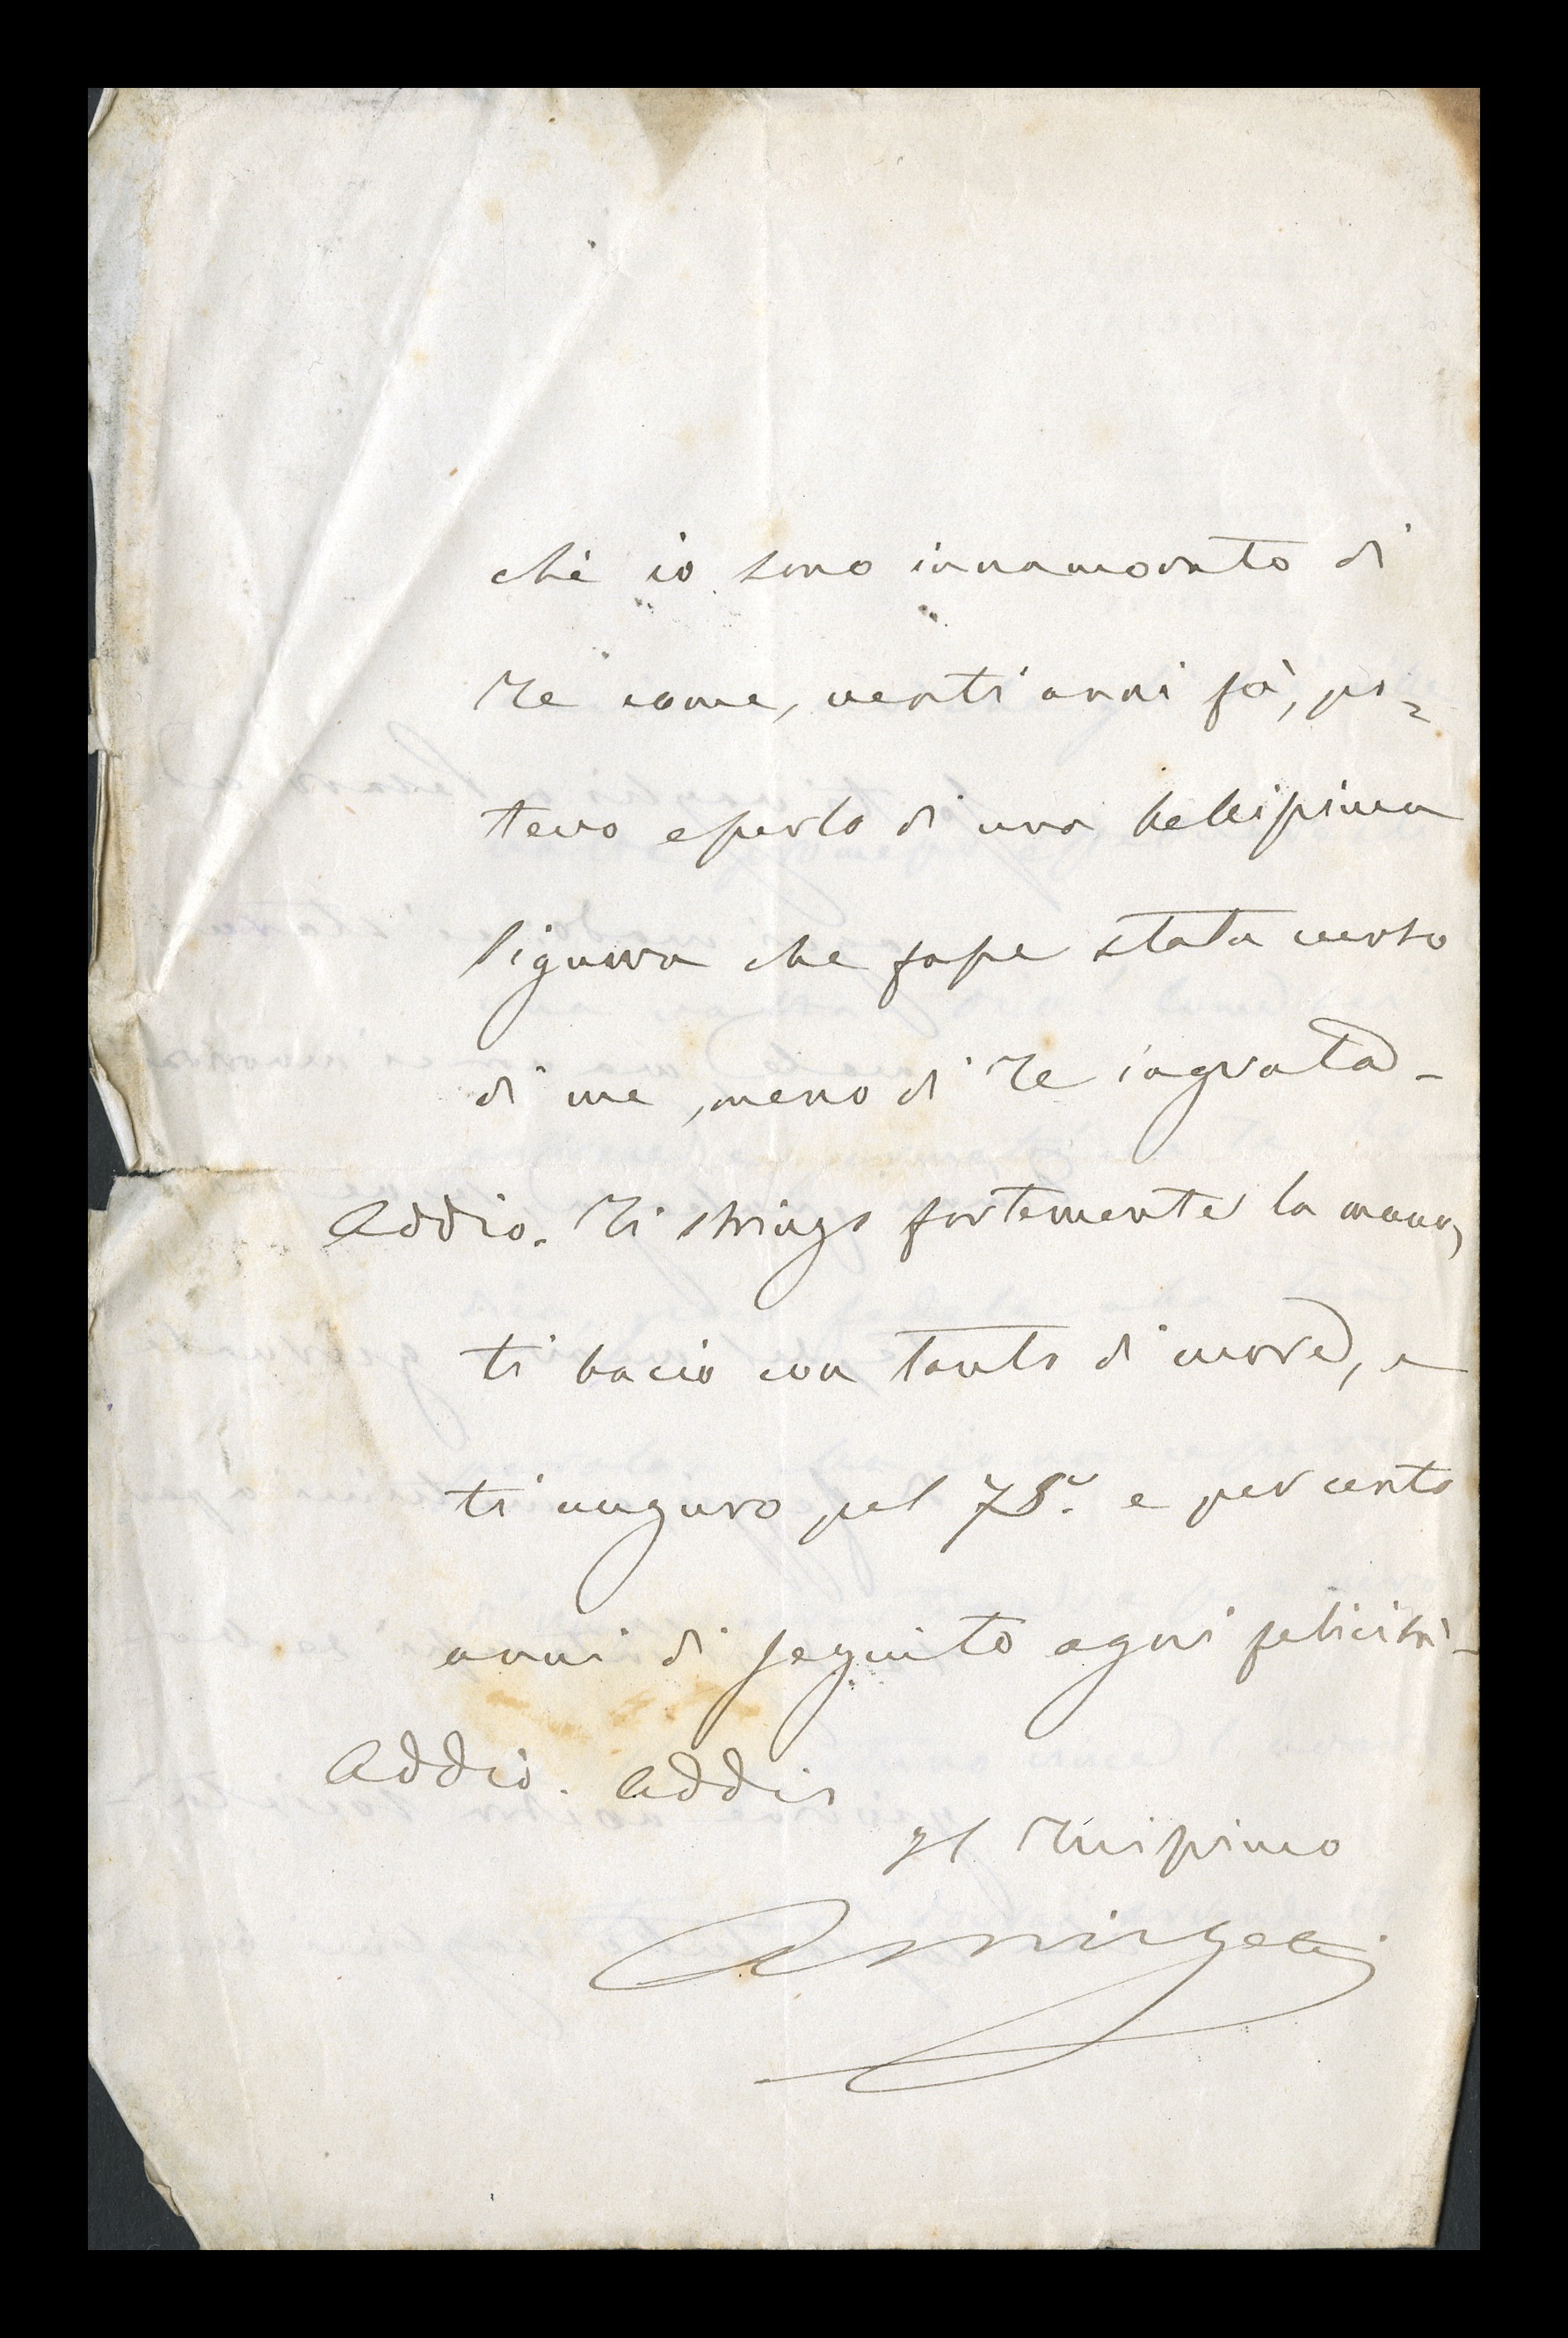 chè io sono innamorato di
Te come, venti anni fà, po=
tevo esserlo di una bellissima
Signora che fosse stata verso
di me, meno di Te ingrata-
Addio. Ti stringo fortemente la mano,
ti bacio con tanto di cuore, e
ti auguro pel 75º. e per cento
anni di seguito ogni felicità-
Addio. Addio
Il Tuissimo